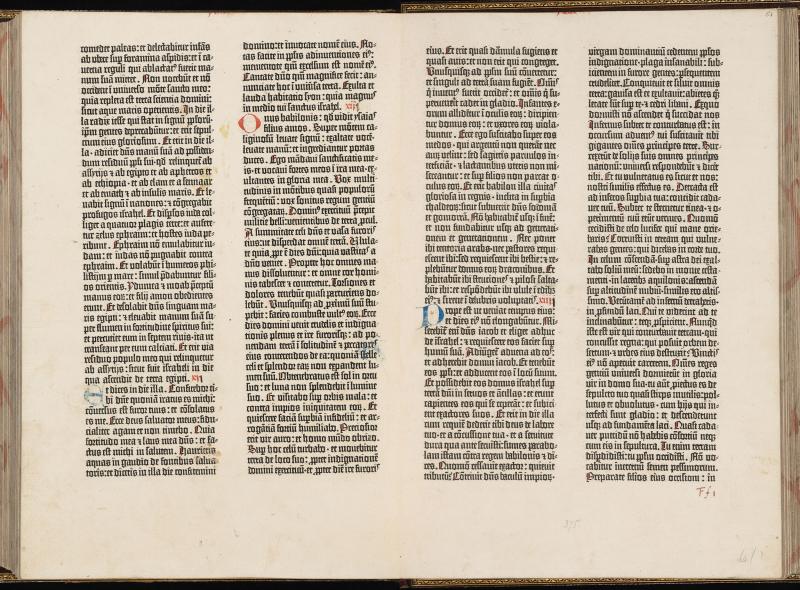 comedet paleas: et delectabitur infãs
ab ubere sup foramina aspidis: et ĩ ca-
verna reguli qui ablactat⁹ fuerit ma-
num suã mittet. Non nocebũt et nõ
occident ĩ universo mõte sancto meo:
quia repleta est terra scientia domini:
sicut aque maris operientis. In die il-
la radix iesse qui stat in signũ
ipm̃ gentes deprecabũtur: et erit sepul-
crum eius gloriosum. Et erit in die il-
la, adiciet dñs manũ suã ad possiden-
dum residuũ ppli sui
assyrijs et ab egipto
et ab ethiopia et ab elam et a sennaar
et ab emath et ab insulis maris. Et le-
vabit signum ĩ nationes: et cõgregabit
profugos israhel. Et dispsos iuda col-
liget a quatuor plagis terre: et aufere-
tur zelus ephraim: et hostes iuda pe-
ribunt. Ephraim nõ emulabitur iu-
dam: et iudas nõ pugnabit contra
ephraim. Et volabũt ĩ humeros phi-
listijm p mare: simul pdabuntur fili-
os orientis. Ydumea et moab pceptũ
manus eorũ: et filij amon obedientes
erunt. Et desolabit dñs linguam ma-
ris egipti: et levabit manum suã su-
per flumen in fortitudine spiritus sui:
et percutiet eum in septem rivis: ita ut
transeant per eum calciati. Et erit via
residuo populo meo qui relinquetur
ab assyrijs: sicut fuit israheli in die
qua ascendit de terra egipti. xij
Et dices in die illa. Confitebor ti-
bi dñe quoniã iratus es michi:
cõversus est furor tuus: et cõsolatus
es me. Ecce deus salvator meus: fidu-
cialiter agam et non timebo. Quia
fortitudo mea et laus mea dñs: et fa-
ctus est michi in salutem. Haurietis
aquas in gaudio de fontibus salva-
toris: et dicetis in illa die confitemini
domino: et invocate nomẽ eius. No-
tas facite in pplis adinventiones ei⁹:
mementote qm̃ excelsum est nomẽ ei⁹.
Cantate dño qm̃ magnifice fecit: an-
nunciate hoc ĩ universa terra. Exulta et
lauda habitatio syon: quia magnus
in medio tui sanctus israhel. xiij
Onus babilonis: qd vidit ysaias
filius amos. Super mõtem ca-
liginosũ levate signũ: exaltate vocẽ:
levate manũ: et ingrediantur portas
duces. Ego mãdavi sanctificatis me-
is: et vocavi fortes meos ĩ ira mea: ex-
ultantes in gloria mea. Vox multi-
tudinis in mõtibus quasi populorũ
frequẽtiũ: vox sonitus regum gentiũ
cõgregatarũ. Domin⁹ exercituũ pcepit
militie belli: venientibus de terra pcul.
A summitate celi dñs et vasa furoris
eius: ut disperdat omnẽ terrã. Ululate
quia ppe est dies dñi: quasi vastitas a
dño veniet. Propter hoc omnes ma-
nus dissolventur: et omne cor homi-
nis tabescet et conteretur. Torsiones et
dolores tenebũt quasi parturiens do-
lebũt. Unusquisq ad pximũ suũ stu-
pebit: facies combuste vult⁹ eorũ. Ecce
dies domini veniet crudelis et indigna-
tionis plenus et ire furorisq: ad po-
nendam terrã ĩ solitudinẽ et peccatores
eius conterendos de ea: quoniã stelle
celi et splendor earũ non expandent lu-
men suũ. Obtenebratus est sol in ortu
suo: et luna non splendebit ĩ lumine
suo. Et visitabo sup orbis mala: et
contra impios iniquitatem eorũ. Et
quiescere faciã supbiã infideliũ: et ar-
rogãtiã fortiũ humiliabo. Preciosior
erit vir auro: et homo mũdo obrizo.
Sup hoc celũ turbabo: et movebitur
terra de loco suo: ppter indignationẽ
domini exercituũ: et ppter diẽ ire furoris
eius. Et erit quasi dãmula fugiens et
quasi ovis: et non erit qui congreget.
Unusquisq ad pplm suũ cõvertetur:
et singuli ad terrã suam fugiẽt. Om̃is
qui invent⁹ fuerit occidet: et om̃is qui su-
pervenerit cadet in gladio. Infantes e-
orum allident ĩ oculis eorũ: diripien-
tur domus eorũ: et uxores eorũ violа-
buntur. Ecce ego suscitabo super eos
medos: qui argentũ non querãt nec
aurũ velint: sed sagittis parvulos in-
terficiãt: et lactantibus uteris non mi-
sereantur: et sup filios non parcat o-
culus eorũ. Et erit babilon illa civitas
gloriosa in regnis: inclita in supbia
chaldeorũ: sicut subvertit dñs sodomã
et gomorrã. Nõ habitabit usq ĩ finẽ:
et non fundabitur usq ad generati-
onem et generationem. Nec ponet
ibi tentoria arabs: nec pastores requi-
escent ibi: sed requiescent ibi bestie: et re-
plebũtur domus eorũ draconibus. Et
habitabũt ibi strutiones et pilosi salta-
bũt ibi: et respõdebũt ibi ulule ĩ edib⁹
ei⁹: et sirenes ĩ delubris voluptatis. xiiij
Prope est ut veniat tempus eius:
et dies ei⁹ nõ elongabũtur. Mi-
serebit̃ em̃ dñs iacob et eliget adhuc
de israhel: et requiescere eos faciet sup
humũ suã. Adiũget̃ advena ad eos:
et adherebit domui iacob. Et tenebũt
eos ppli: et adducent eos ĩ locũ suum.
Et possidebit eos domus israhel sup
terrã dñi in servos et ãcillas: et erunt
capientes eos qui se ceperãt: et subicient
exactores suos. Et erit in die illa
cum requiẽ dederit tibi deus a labore
tuo et a concussione tua: et a servitute
dura qua ante servisti: sumes parabo-
lam istam cõtra regem babilonis et di-
ces. Quomõ cessavit exactor: quievit
tributũ? Cõtrivit dñs baculũ impiorũ:
virgam dominantiũ cedentem pplos
indignatione plaga insanabili: sub-
icientem in furore gentes: psequentem
crudeliter. Conquievit et siluit omnis
terra: gavisa est et exultavit: abietes quoque
letate sũt sup te et cedri libani. Ex quo
dormisti nõ ascendet qui succidat nos.
Infernus subter te conturbatus est: in
occursum advent⁹ tui suscitavit tibi
gigantes. Omnes principes terre sur-
rexerũt de solijs suis omnes principes
nationũ: universi respondebũt et dicẽt
tibi. Et tu vulneratus es sicut et nos:
nostri similis effectus es. Detracta est
ad inferos supbia tua: concidit cada-
ver tuũ. Subter te sternetur tinea: et o-
perimentũ tuũ erũt vermes. Quomõ
cecidisti de celo lucifer qui mane orie-
baris? Corruisti in terram qui vulne-
rabas gentes: qui dicebas in corde tuo.
In celum cõscendã: sup astra dei exal-
tabo soliũ meũ: sedebo in monte testa-
menti: in laterib⁹ aquilonis: ascendã
sup altitudinẽ nubiũ: similis ero altis-
simo. Verũtamẽ ad infernũ detraheris:
in pfundũ laci. Qui te viderint ad te
inclinabũtur: teq pspicient. Nũquid
iste est vir qui conturbavit terram: qui
concussit regna: qui posuit orbem de-
sertum: et urbes eius destruxit: vinctis
ei⁹ nõ aperuit carcerem. Omnes reges
gentiũ universi dormierũt in gloria:
vir in domo sua: tu aut piectus es de
sepulcro tuo quasi stirps inutilis: pol-
lutus et obvolutus: cum hijs qui in-
terfecti sunt gladio: et descenderunt
usq ad fundamẽta laci. Quasi cada-
ver putridũ nõ habebis cõsortiũ neq
cum eis in sepultura. Tu enim terram
disperdidisti: tu pplm occidisti. Nõ vo-
cabitur ineternũ semen pessimorum.
Preparate filios eius occisioni: in
F f 1
375